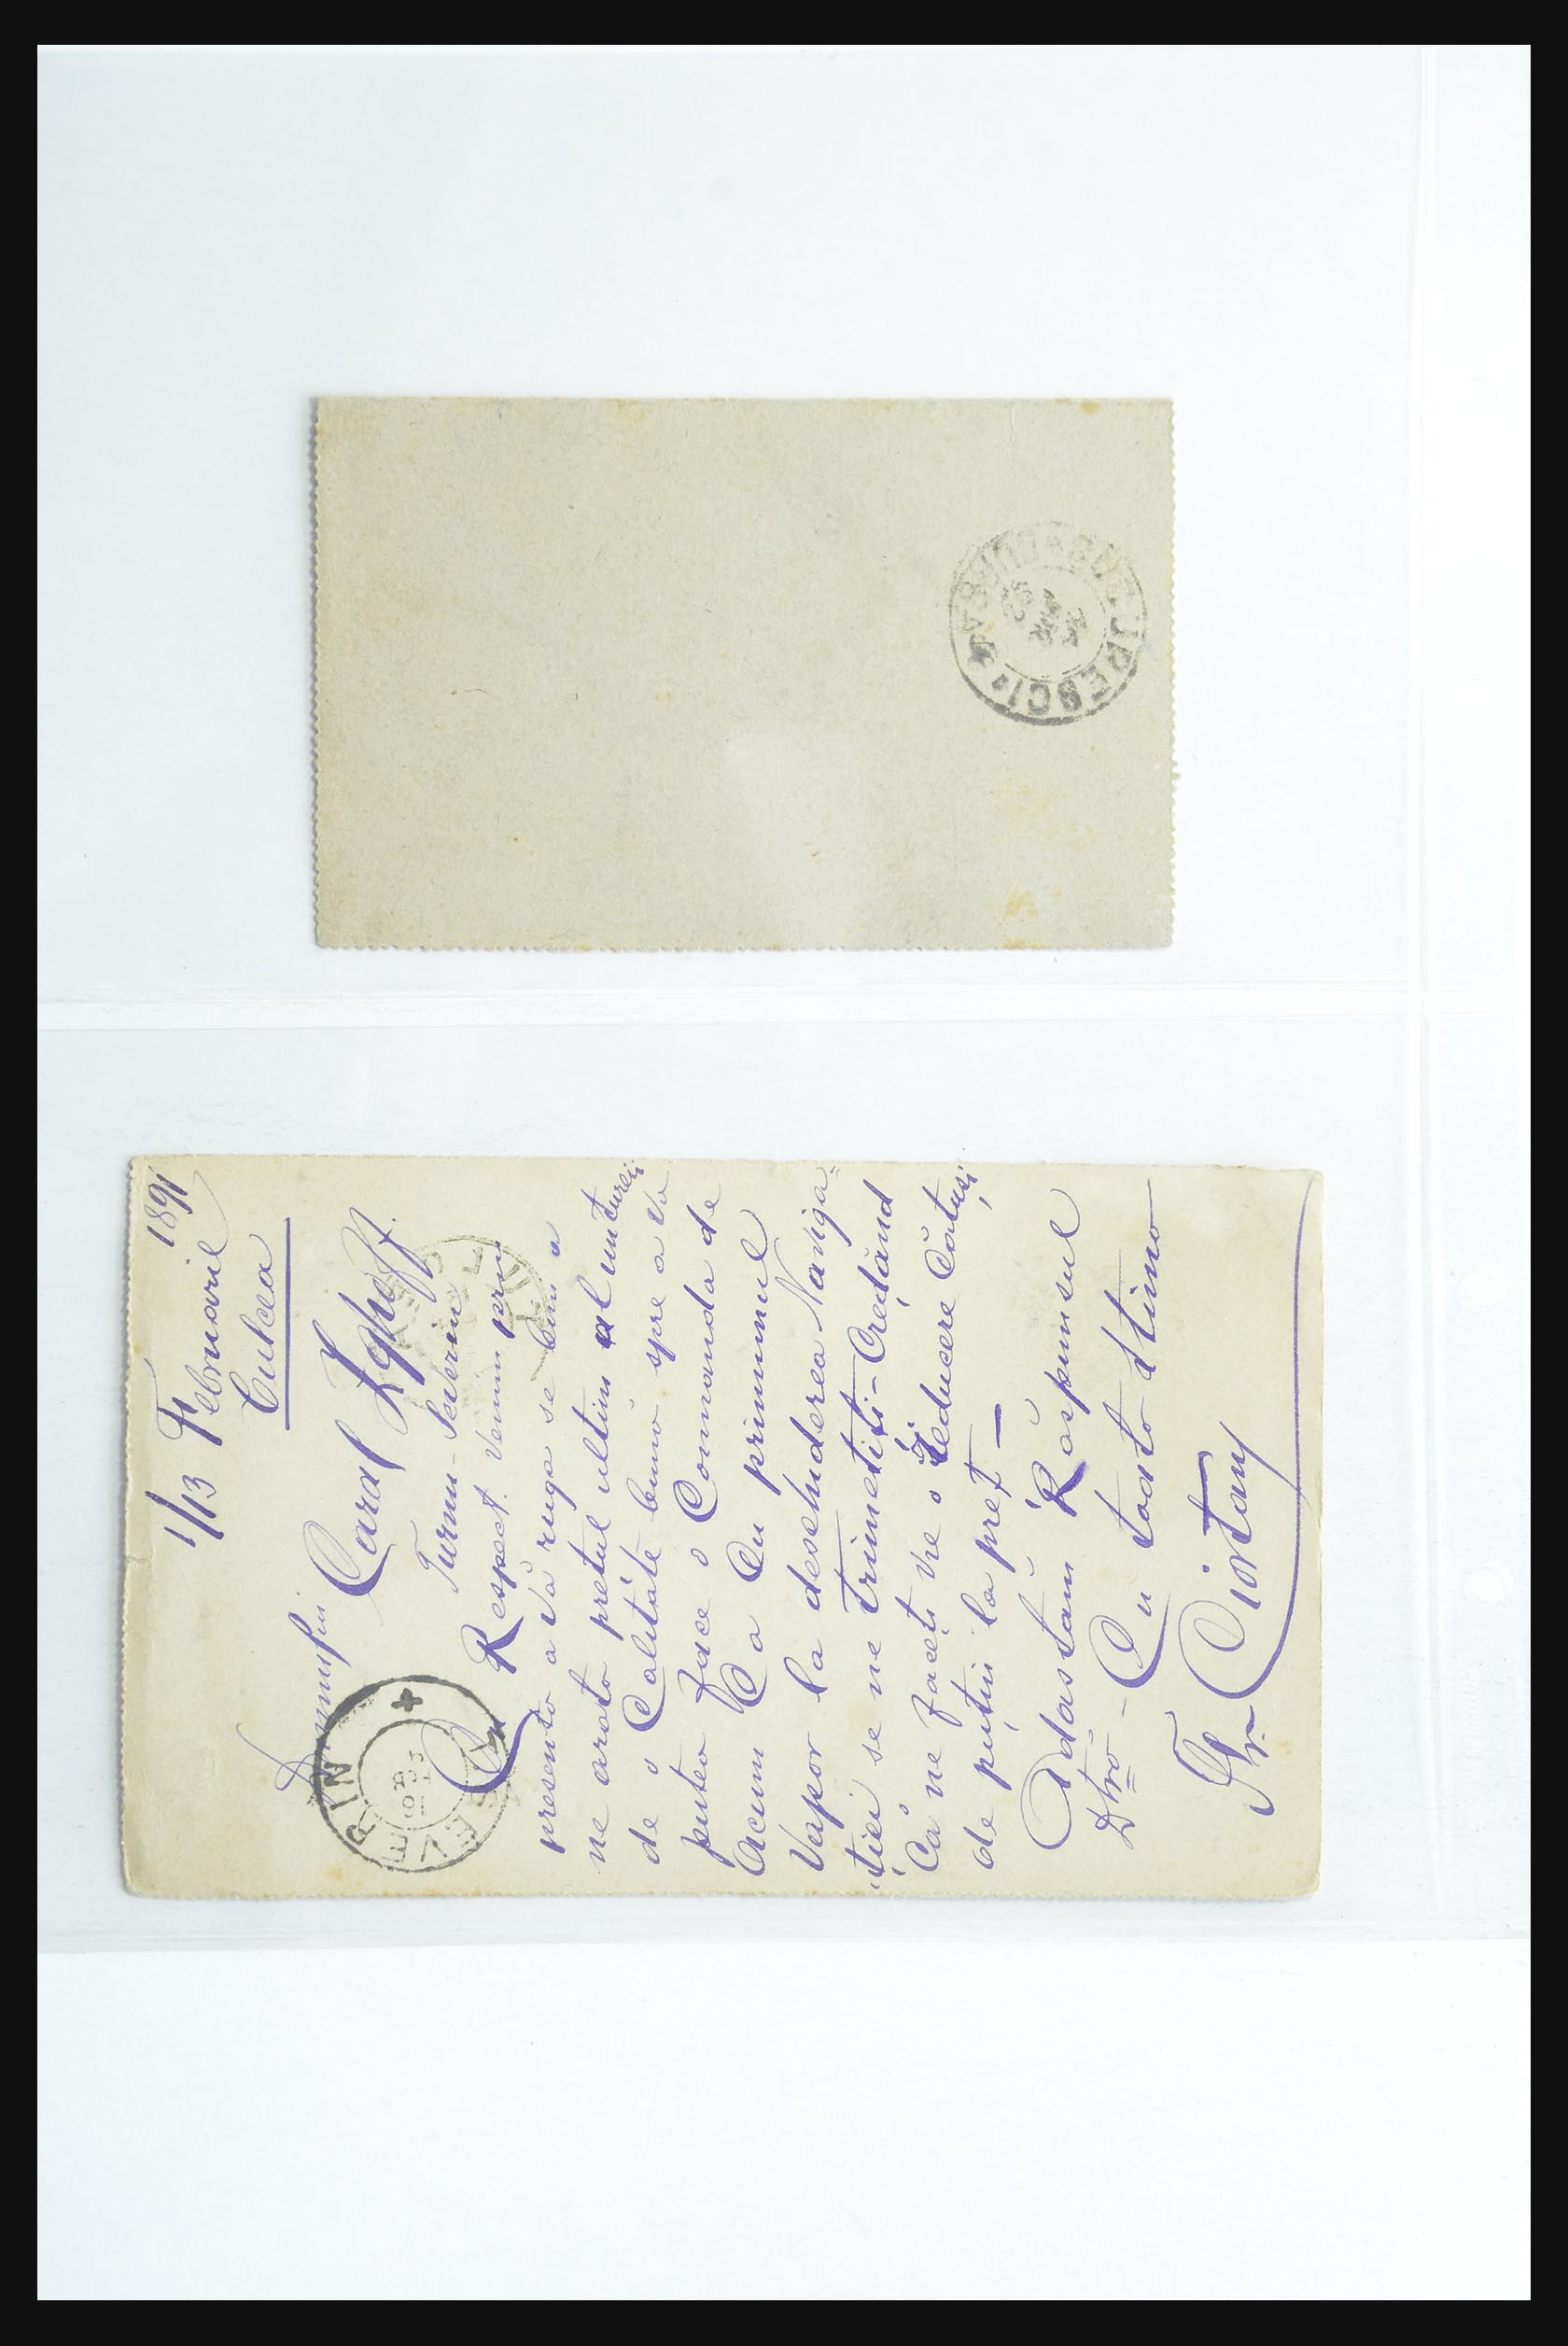 BUC
RESCI
1/13 Februarie 1891
Tulcea
Domnului
Carol Zghoff.
Turnu-Severin
Cu Respect. Venim prin
presenta a vă ruga se bine a
ne arata prețul ultim al untureii
de o Calitate bună spre a vă
putea face o Comanda de
Acum Ca Cu primmul
Vapor la deschiderea Naviga=
ției se ne trimeteți- Crețănd
Că ne faceți vre o Reducere Cătuși
de puțin la preț —
Adastăm Răspunsul
Dtră = Cu toată Stima
Gr. Ciortan
SEVERIN
FEB